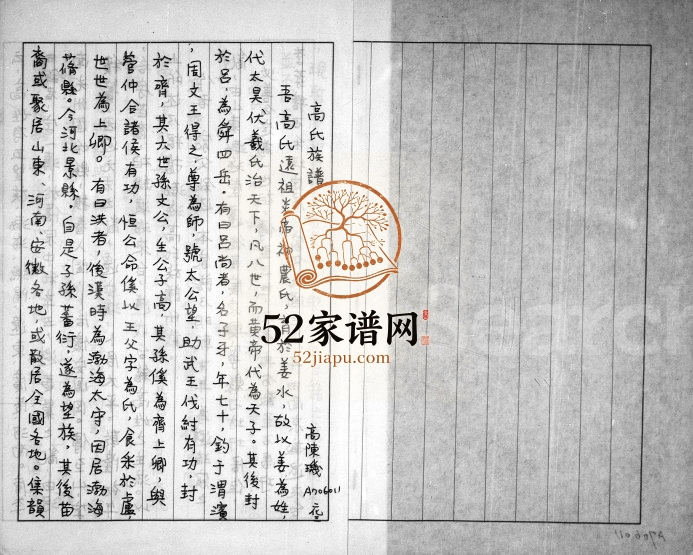 高氏族譜
高陳璣 A706011
吾高氏遠祖炎帝神農氏，育於姜水，故以姜為姓，
代太昊伏羲氏治天下，凡八世，而黄帝代為天子。其後封
於呂，為舜四岳。有曰呂尚者，名子牙，年七十，釣于渭濱
，周文王得之，尊為師，號太公望，助武王伐紂有功，封
於齊，其六世孫文公，生公子高，其孫傒為齊上卿，與
管仲合諸侯有功，恒公命傒以王父字為氏，食采於盧，
世世為上卿。有曰洪者，後漢時為渤海太守，因居渤海
蓨縣。今河北景縣。自是子孫蕃衍，遂為望族。其後苗
裔或聚居山東、河南、安徽各地，或散居全國各地。集韻
52家谱网
52jiapu.com
A706011